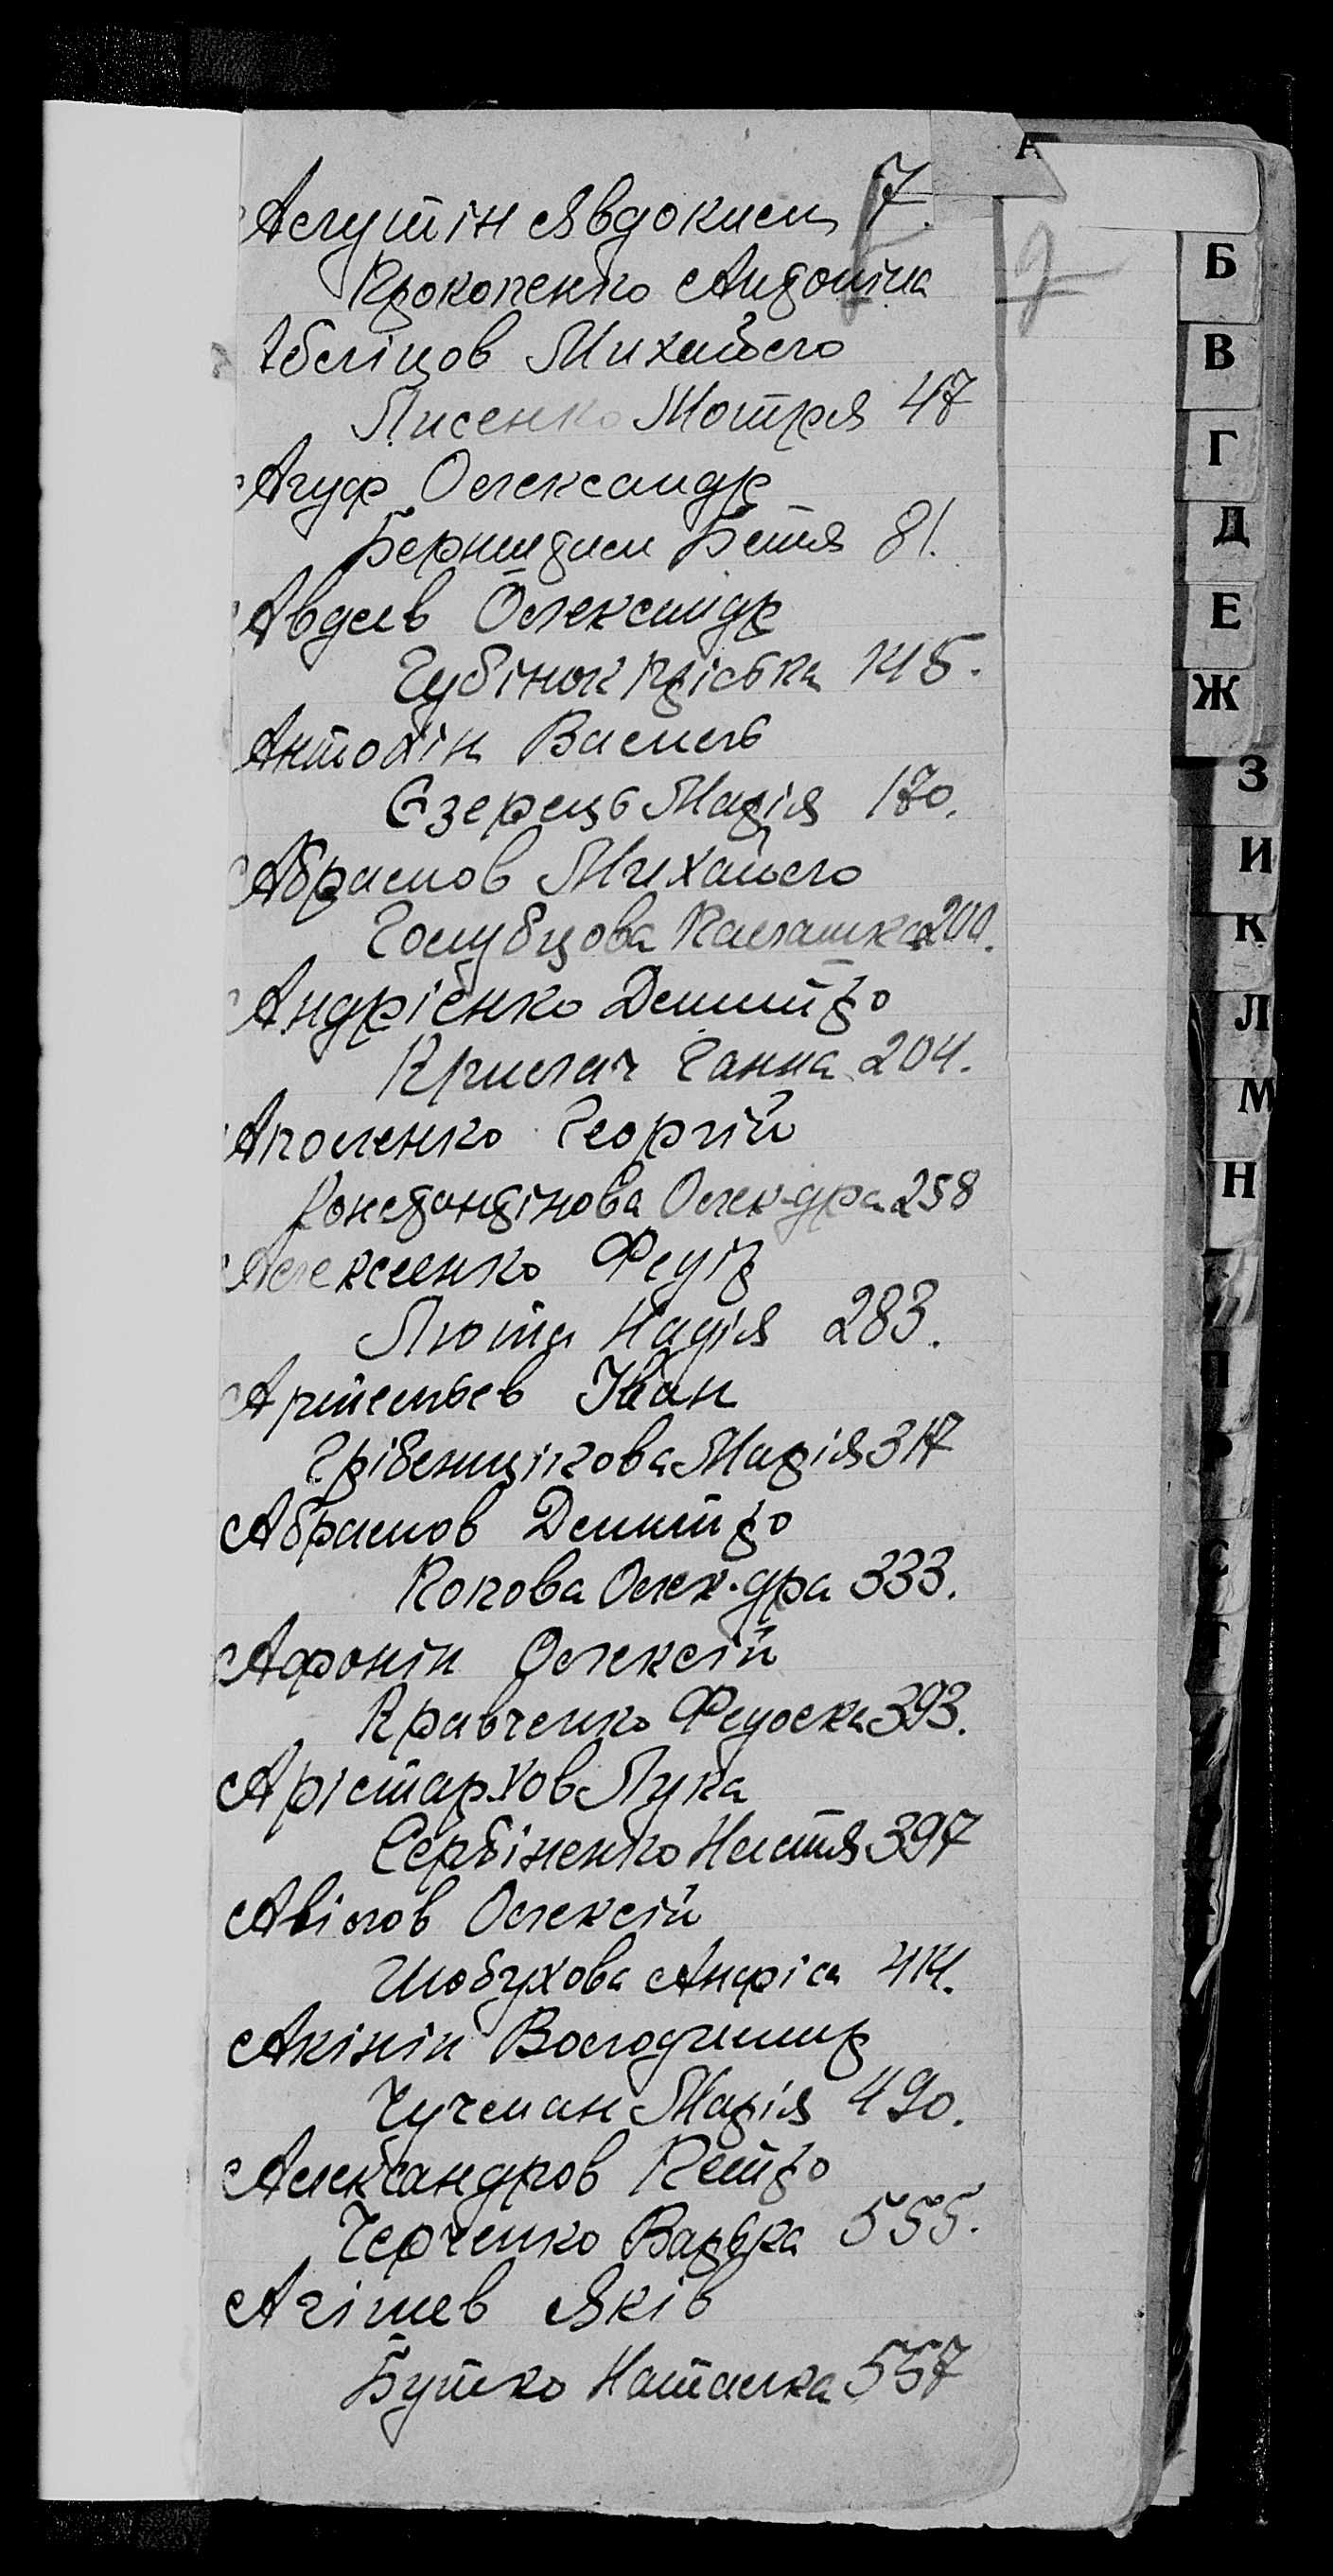 Асгутін Явдоким 7.
Прокопенко Антоніна
Абєліцов Михайло
Лисенко Мотря 47
Агуф Олександр
Берштейн Бетя 81.
Авдєєв Олександр
Губінок Пріська 145.
Антохін Василь
Єзерець Марія 170.
Абрамов Михайло
Голубцова Палашка 200.
Андрієнко Дмитро
Крилач Ганна 204.
Аполенко Георгій
Константінова Олек-дра 258
Алексеєнко Федір
Люта Надія 283.
Артемьєв Іван
Грібенщікова Марія 317
Абрамов Дмитро
Попова Олек-дра 333.
Афонін Олексій
Кравченко Федоска 393.
Арістархов Лука
Сербіненко Настя 397
Авілов Олексій
Шобухова Анфіса 414.
Акінін Володимир
Чучман Марія 490.
Александров Петро
Черченко Варька 555.
Агішев Яків
Бутко Наталка 557
А
Б
В
Г
Д
Е
Ж
З
И
К
Л
М
Н
П
Р
С
Т